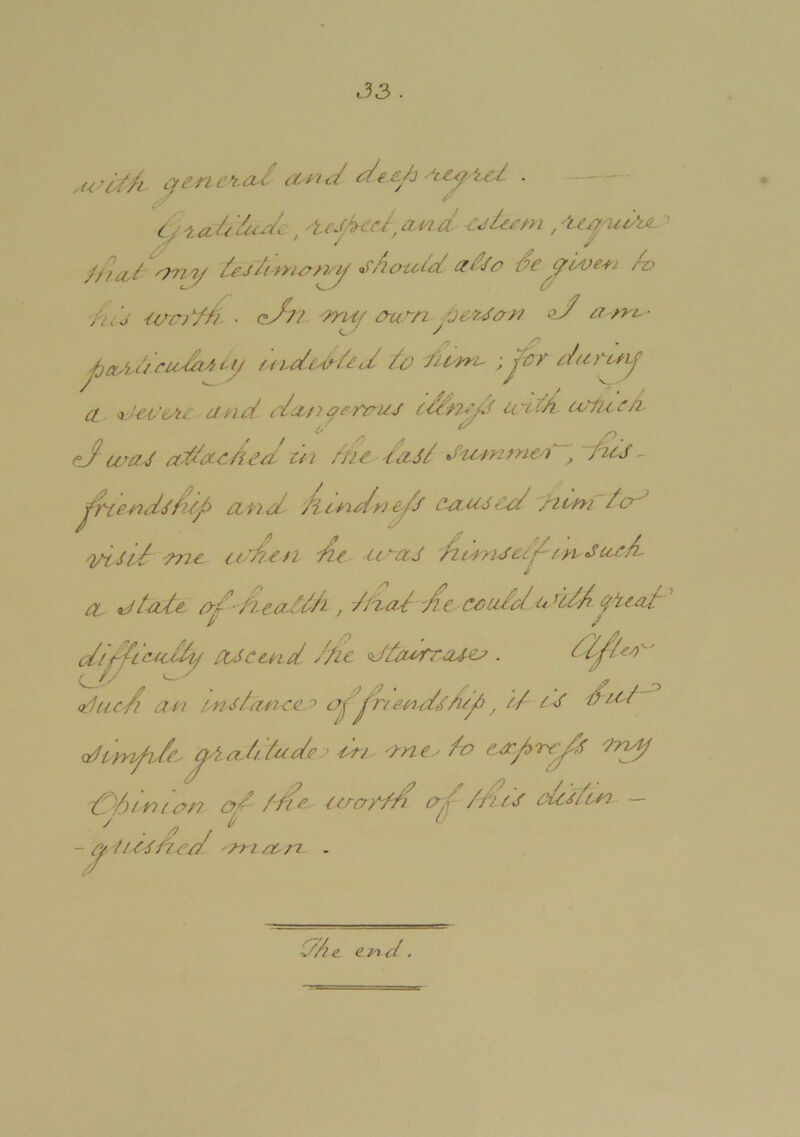 33.
with general and deep regret.
Gratitude, respect, and esteem, require
that my testimony should also be given to
his worth. In my own person I am
particularly indebted to him; for during
a severe and dangerous illness with which
I was attacked in the last Summer, his
friendship and kindness caused him to
visit me when he was himself in such
a state of health, that he could with great
difficulty ascend the Staircase. After
such an instance of friendship, it is but
simple gratitude in me to express my
Opinion of the worth of this distin-
-guished man.
The end.